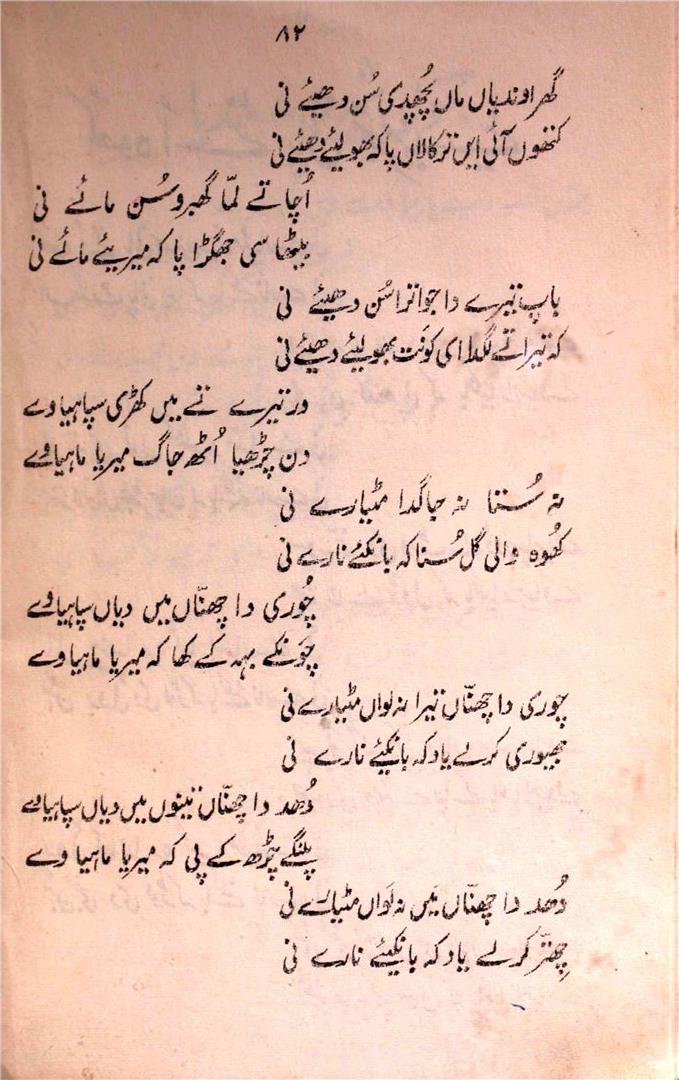 ۸۲
گھر اوندیاں ماں پُچھدی سُن دھیئے نی
کتھوں آئی ایں ترکالاں پا کہ بھولیئے دھیئے نی
اُچا تے لمّا گھبرو سُن مائے نی
بیٹھا سی جھگڑا پا کہ میریئے مائے نی
باپ تیرے دا جوانترا سُن دھیئے نی
کہ تیرا تے لگدا ای کونت بھولیئے دھیئے نی
ور تیرے تے میں کھڑی سپاہیا وے
دن چڑھیا اُٹھ جاگ میریا ماہیا وے
نہ سُتا نہ جاگدا مٹیارے نی
کھُوہ والی گل سُنا کہ بانکیئے نارے نی
چُوری دا چھنّاں میں دیاں سپاہیا وے
چَونکے بہہ کے کھا کہ میریا ماہیا وے
چوری دا چھنّاں تیرا نہ لواں مٹیارے نی
بھبوری کر لے یاد کہ بانکیئے نارے نی
دُھد دا چھنّاں تینوں میں دیاں سپاہیا وے
پلنگے چڑھ کے پی کہ میریا ماہیا وے
دُھد دا چھنّاں مَیں نہ لَواں مٹیارے نی
چِھنّر کر لے یاد کہ بانکیئے نارے نی